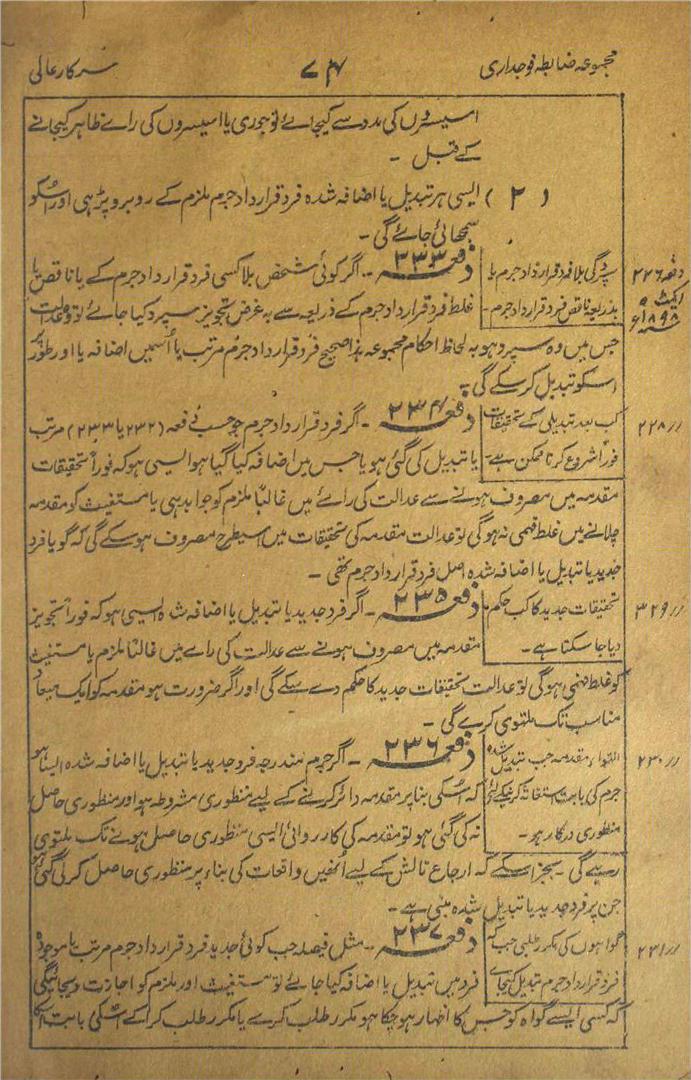 مجموعہ ضابطہ فوجداری
۷۴
سرکار عالی
اسیسروں کی مدد سے کیجائے تو جوری یا اسیسروں کی رائے ظاہر کیجانے
کے قبل ۔
(۲) ایسی ہر تبدیل یا اضافہ شدہ فرد قرارداد جرم ملزم کے روبرو پڑہی اور اسکو
سمجھائی جائے گی ۔
دفعہ ۲۲۶
ایکٹ ۵
۱۸۹۸ء
سپردگی بلا فرد قرارداد جرم یا
بذریعہ ناقص فرد قرارداد جرم ۔
دفعہ ۲۳۳ ۔ اگر کوئی شخص بلا کسی فرد قرارداد جرم کے یا ناقص یا
غلط فرد قرارداد جرم کے ذریعہ سے بہ غرض تجویز سپرد کیا جائے تو وہ عدالت
جس میں وہ سپرد ہو بہ لحاظ احکام مجموعہ ہذا صحیح فرد قرارداد جرم مرتب یا اُسمیں اضافہ یا اور طور پر
اسکو تبدیل کرسکے گی ۔
〃 ۲۲۸
کب بعد تبدیلی کے تحقیقات
فوراً شروع کرنا ممکن ہے ۔
دفعہ ۲۳۴ ۔ اگر فرد قرارداد جرم جو حسب دفعہ (۲۳۲ یا ۲۳۳) مرتب
یا تبدیل کی گئی ہو یا جس میں اضافہ کیا گیا ہو ایسی ہو کہ فوراً تحقیقات
مقدمہ میں مصروف ہونے سے عدالت کی رائے میں غالباً ملزم کو جوابدہی یا مستغیث کو مقدمہ
چلانے میں غلط فہمی نہ ہوگی تو عدالت مقدمہ کی تحقیقات میں اسیطرح مصروف ہوسکے گی کہ گویا فرد
جدید یا تبدیل یا اضافہ شدہ اصل فرد قرارداد جرم تھی ۔
〃 ۳۲۹
تحقیقات جدید کا کب حکم
دیا جاسکتا ہے ۔
دفعہ ۲۳۵ ۔ اگر فرد جدید یا تبدیل یا اضافہ شدہ ایسی ہو کہ فوراً تجویز
مقدمہ میں مصروف ہونے سے عدالت کی رائے میں غالباً ملزم یا مستغیث
کو غلط فہمی ہوگی تو عدالت تحقیقات جدید کا حکم دے سکے گی اور اگر ضرورت ہو مقدمہ کو ایک میعاد
مناسب تک ملتوی کرے گی ۔
〃 ۲۳۰
التواء مقدمہ جب تبدیل شدہ
جرم کی بابت استغاثہ کرنیکے لئے
منظوری درکار ہو ۔
دفعہ ۲۳۶ ۔ اگر جرم مندرجہ فرد جدید یا تبدیل یا اضافہ شدہ ایسا ہو
کہ اسکی بنا پر مقدمہ دائر کرنے کے لیے منظوری مشروط ہو اور منظوری حاصل
نہ کی گئی ہو تو مقدمہ کی کارروائی ایسی منظوری حاصل ہونے تک ملتوی
رہیگی ۔ بجز اسکے کہ ارجاع نالش کے لیے اُنھیں واقعات کی بناء پر منظوری حاصل کرلی گئی ہو
جن پر فرد جدید یا تبدیل شدہ مبنی ہے ۔
〃 ۲۳۱
گواہوں کی مکرر طلبی جب کہ
فرد قرارداد جرم تبدیل کیجائے
دفعہ ۲۳۷ ۔ مثل فیصلہ جب کوئی جدید فرد قرارداد جرم مرتب یا موجودہ
فرد میں تبدیل یا اضافہ کیا جائے تو مستغیث اور ملزم کو اجازت دیجائیگی
کہ کسی ایسے گواہ کو جس کا اظہار ہوچکا ہو مکرر طلب کرے یا مکرر طلب کراکے اسکی بابت اسکا